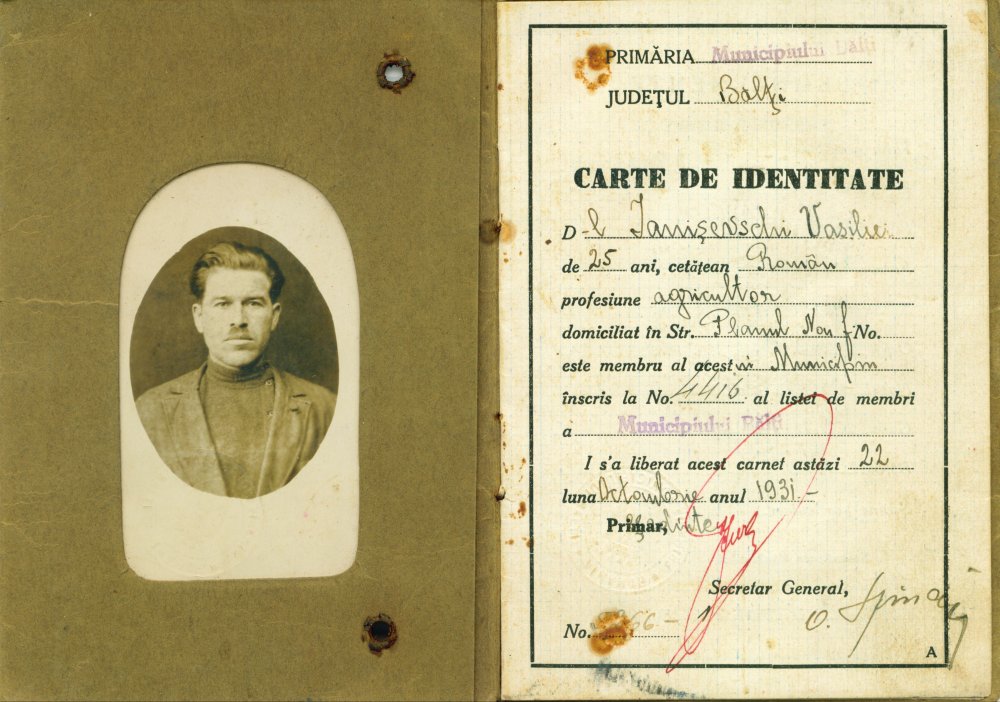 PRIMĂRIA Municipiului Bălți
JUDEŢUL Bălţi
CARTE DE IDENTITATE
D-l Ianişevschi Vasiliei
de 25 ani, cetăţean Român
profesiune agricultor
domiciliat în Str. Planul Nou f No.
este membru al acestui Municipiu
înscris la No. 4416 al listei de membri
a Municipiului Bălți
I s'a liberat acest carnet astăzi 22
luna Octombrie anul 1931 -
Primar,
Secretar General,
No.
A